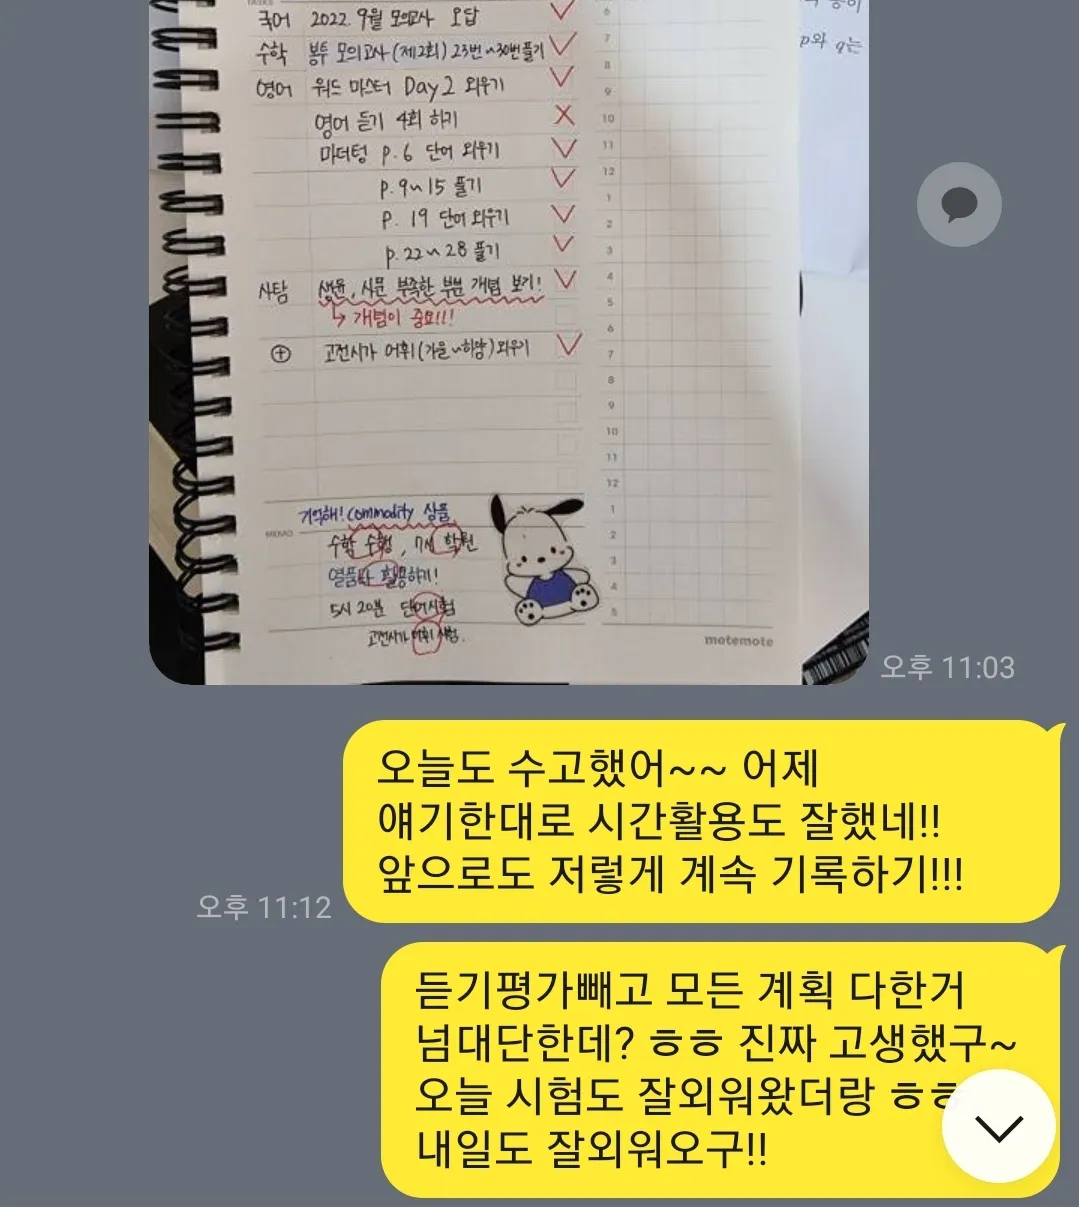 TASKS
국어 2022. 9월 모의고사 오답
수학 봉투 모의고사 (제2회) 23번~30번 풀기
영어 워드 마스터 Day 2 외우기
영어 듣기 4회 하기
마더텅 p.6 단어 외우기
p.9~15 풀기
p. 19 단어 외우기
p.22~28 풀기
사탐 생윤, 사문 부족한 부분 개념 보기!
↳ 개념이 중요!!!
⊕ 고전시가 어휘(가을~하암)외우기
6
7
8
9
10
11
12
1
2
3
4
5
6
7
8
9
10
11
12
1
2
3
4
5
p와 q는
MEMO
기억해! Commodity 상품
수학 수행, 7시 학원
열품타 활용하기!
5시 20분 단어시험
고전시가 어휘 시험.
motemote
오후 11:03
오늘도 수고했어~~ 어제
얘기한대로 시간활용도 잘했네!!
앞으로도 저렇게 계속 기록하기!!!
오후 11:12
듣기평가빼고 모든 계획 다한거
넘대단한데? ㅎㅎ 진짜 고생했구~
오늘 시험도 잘외워왔더랑 ㅎㅎ
내일도 잘외워오구!!